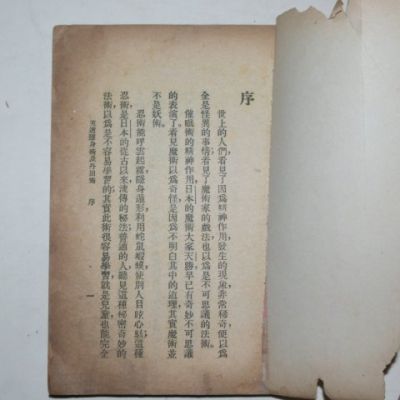 序
世上的人們看見了因爲精神作用發生的現象非常稀奇便以爲
全是怪異的事情看見了魔術家的戲法也以爲是不可思議的法術。
催眠術的精神作用日本的魔術大家天勝早已有奇妙不可思議
的表演了。看見魔術以爲奇怪是因爲不明白其中的道理其實魔術並
不是妖術。
忍術能呼雲起霧隱身遁形利用蛇鼠蝦蟆使別人目眩心惑這種
忍術是日本的從古以來流傳的秘法普通的人聽見這種秘密奇妙的
法術以爲是不容易學習的其實此術很容易學習就是兒童也能完全
隱身術 序
一